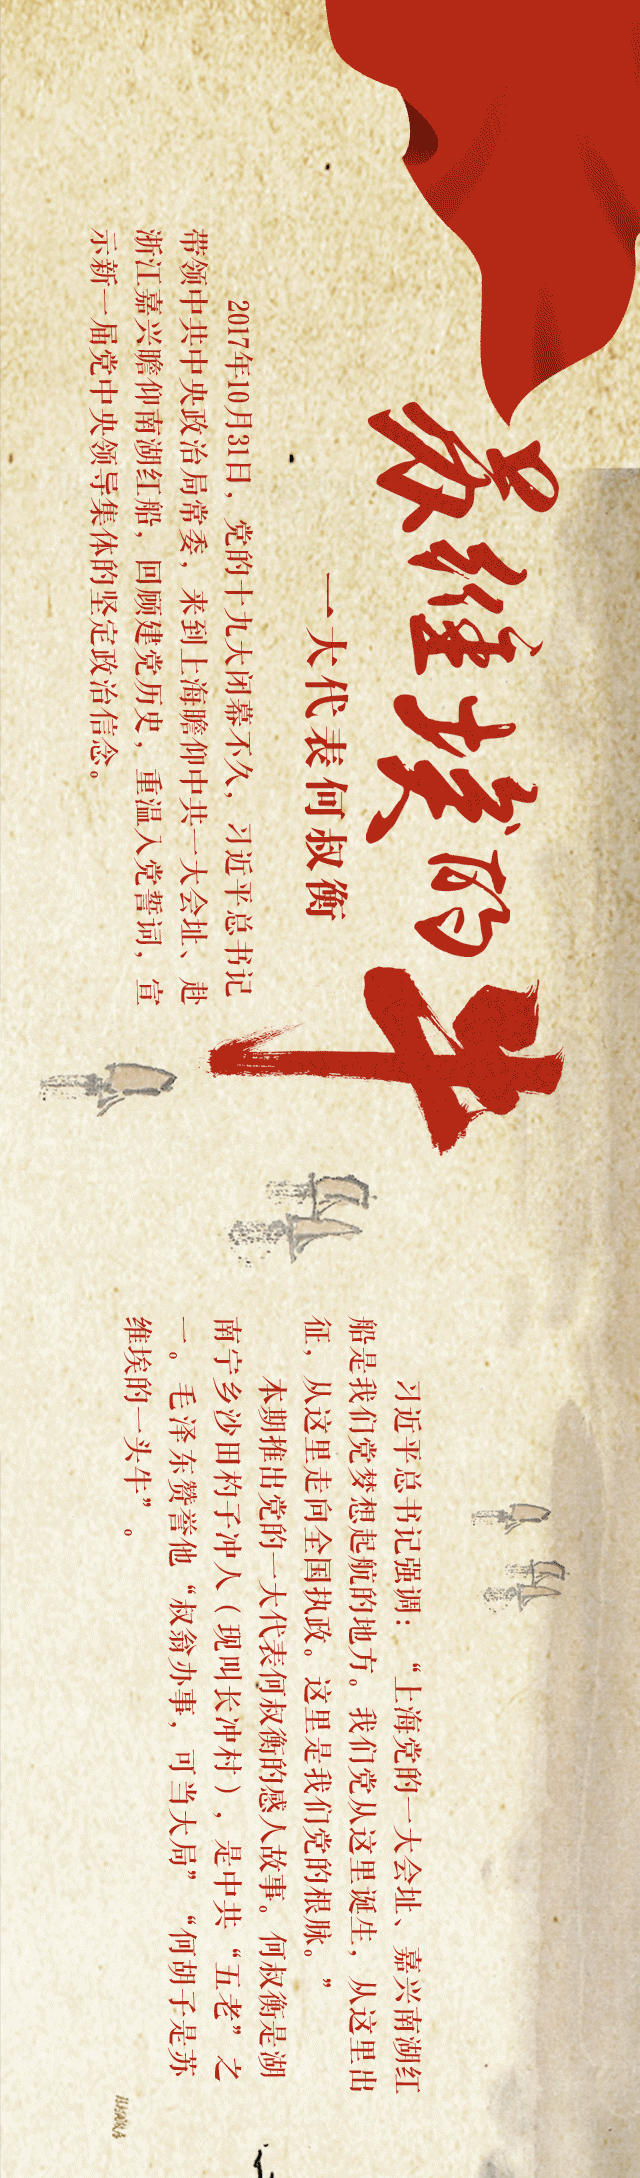 苏维埃的牛
一大代表何叔衡
2017年10月31日，党的十九大闭幕不久，习近平总书记
带领中共中央政治局常委，来到上海瞻仰中共一大会址、赴
浙江嘉兴瞻仰南湖红船，回顾建党历史，重温入党誓词，宣
示新一届党中央领导集体的坚定政治信念。
习近平总书记强调：“上海党的一大会址、嘉兴南湖红
船是我们党梦想起航的地方。我们党从这里诞生，从这里出
征，从这里走向全国执政。这里是我们党的根脉。”
本期推出党的一大代表何叔衡的感人故事。何叔衡是湖
南宁乡沙田杓子冲人（现叫长冲村），是中共“五老”之
一。毛泽东赞誉他“叔翁办事，可当大局”“何胡子是苏
维埃的一头牛”。